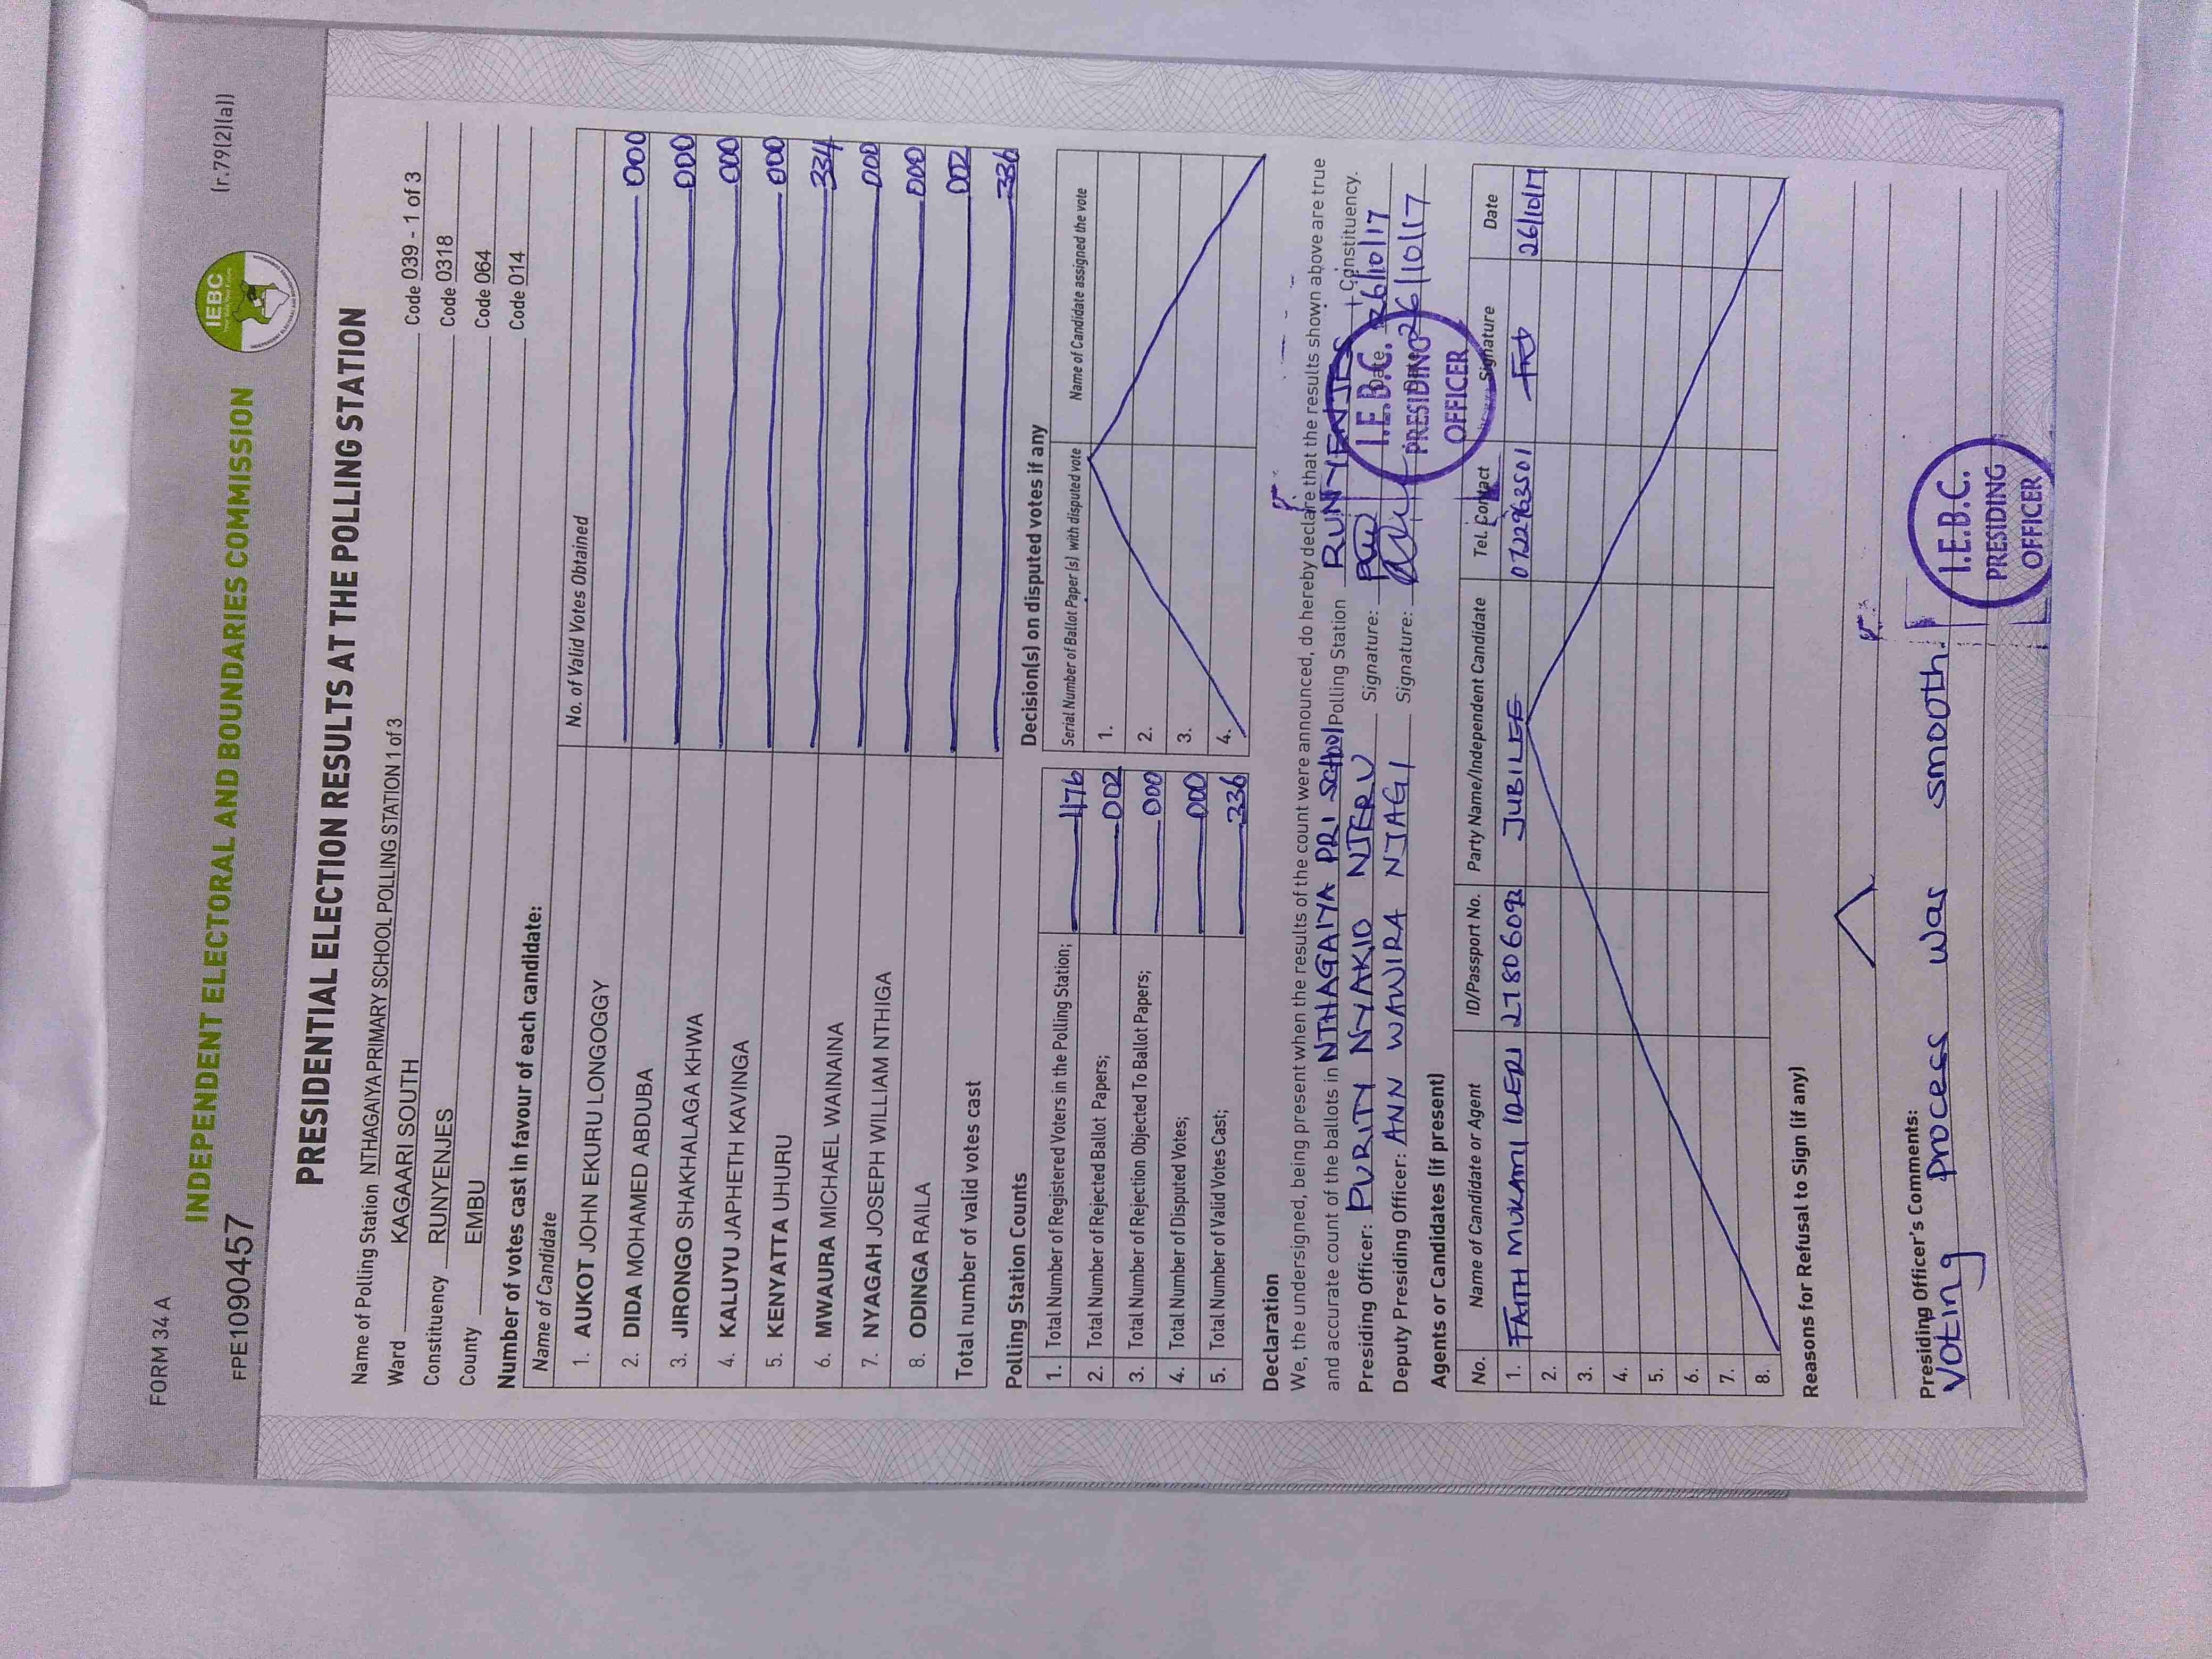 FORM 34 A
(r.79(2)(a))
IEBC
INDEPENDENT ELECTORAL AND BOUNDARIES COMMISSION
FPE1090457
PRESIDENTIAL ELECTION RESULTS AT THE POLLING STATION
Name of Polling Station NTHAGAIYA PRIMARY SCHOOL POLLING STATION 1 of 3 Code 039 - 1 of 3
Ward KAGAARI SOUTH Code 0318
Constituency RUNYENJES Code 064
County EMBU Code 014
Number of votes cast in favour of each candidate:
Name of Candidate No. of Valid Votes Obtained
1. AUKOT JOHN EKURU LONGOGGY 000
2. DIDA MOHAMED ABDUBA 000
3. JIRONGO SHAKHALAGA KHWA 000
4. KALUYU JAPHETH KAVINGA 000
5. KENYATTA UHURU 334
6. MWAURA MICHAEL WAINAINA 000
7. NYAGAH JOSEPH WILLIAM NTHIGA 000
8. ODINGA RAILA 002
Total number of valid votes cast 336
Polling Station Counts
1. Total Number of Registered Voters in the Polling Station; 476
2. Total Number of Rejected Ballot Papers; 002
3. Total Number of Rejection Objected To Ballot Papers; 000
4. Total Number of Disputed Votes; 000
5. Total Number of Valid Votes Cast; 336
Decision(s) on disputed votes if any
Serial Number of Ballot Paper (s) with disputed vote Name of Candidate assigned the vote
1.
2.
3.
4.
Declaration
We, the undersigned, being present when the results of the count were announced, do hereby declare that the results shown above are true
and accurate count of the ballots in NTHAGAIYA PRI SCHOOL Polling Station RUNYENJES Constituency.
Presiding Officer: PURITY NYAKIO NJERU Signature: Date 26/10/17
Deputy Presiding Officer: ANN WAWIRA NJAGI Signature: 26/10/17
I.E.B.C.
PRESIDING
OFFICER
Agents or Candidates (if present)
No. Name of Candidate or Agent ID/Passport No. Party Name/Independent Candidate Tel. Contact Signature Date
1. FAITH MUKAMI IDERI 27806092 JUBILEE 0722963501 26/10/17
2.
3.
4.
5.
6.
7.
8.
Reasons for Refusal to Sign (if any)
Presiding Officer's Comments:
Voting process was smooth.
I.E.B.C.
PRESIDING
OFFICER